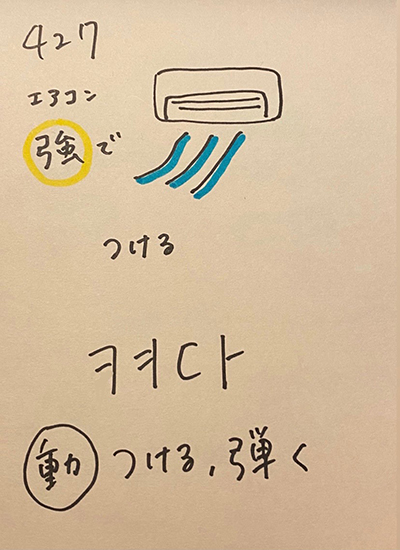 427
エアコン
強で
つける
켜다
動 つける, 弾く